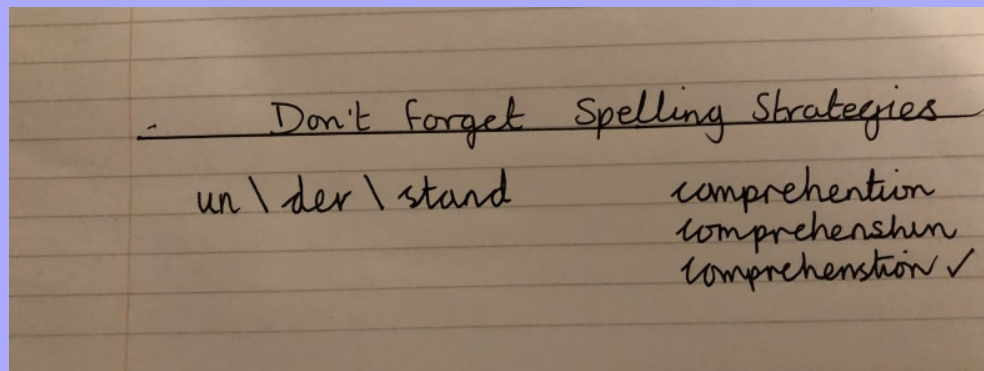 Don't forget Spelling Strategies
un \ der \ stand
comprehention
comprehenshun
comprehenstion ✓